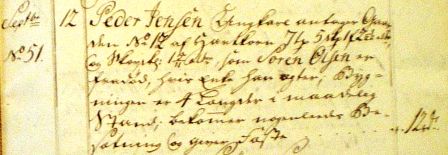 Septbr 12 Peder Jensen Ungkarl antager Gaar-
No 51. den No 12 af Hartkorn 7 tp 5 skp 1 f
og Skovsk: som Søren Olsen er
fradød, hvis Enke har egter, Byg-
ningen er 4 Længder i maadelig
Stand; bekomer nogenlunde Be-
sætning og giver Fæste - - - 12 rd